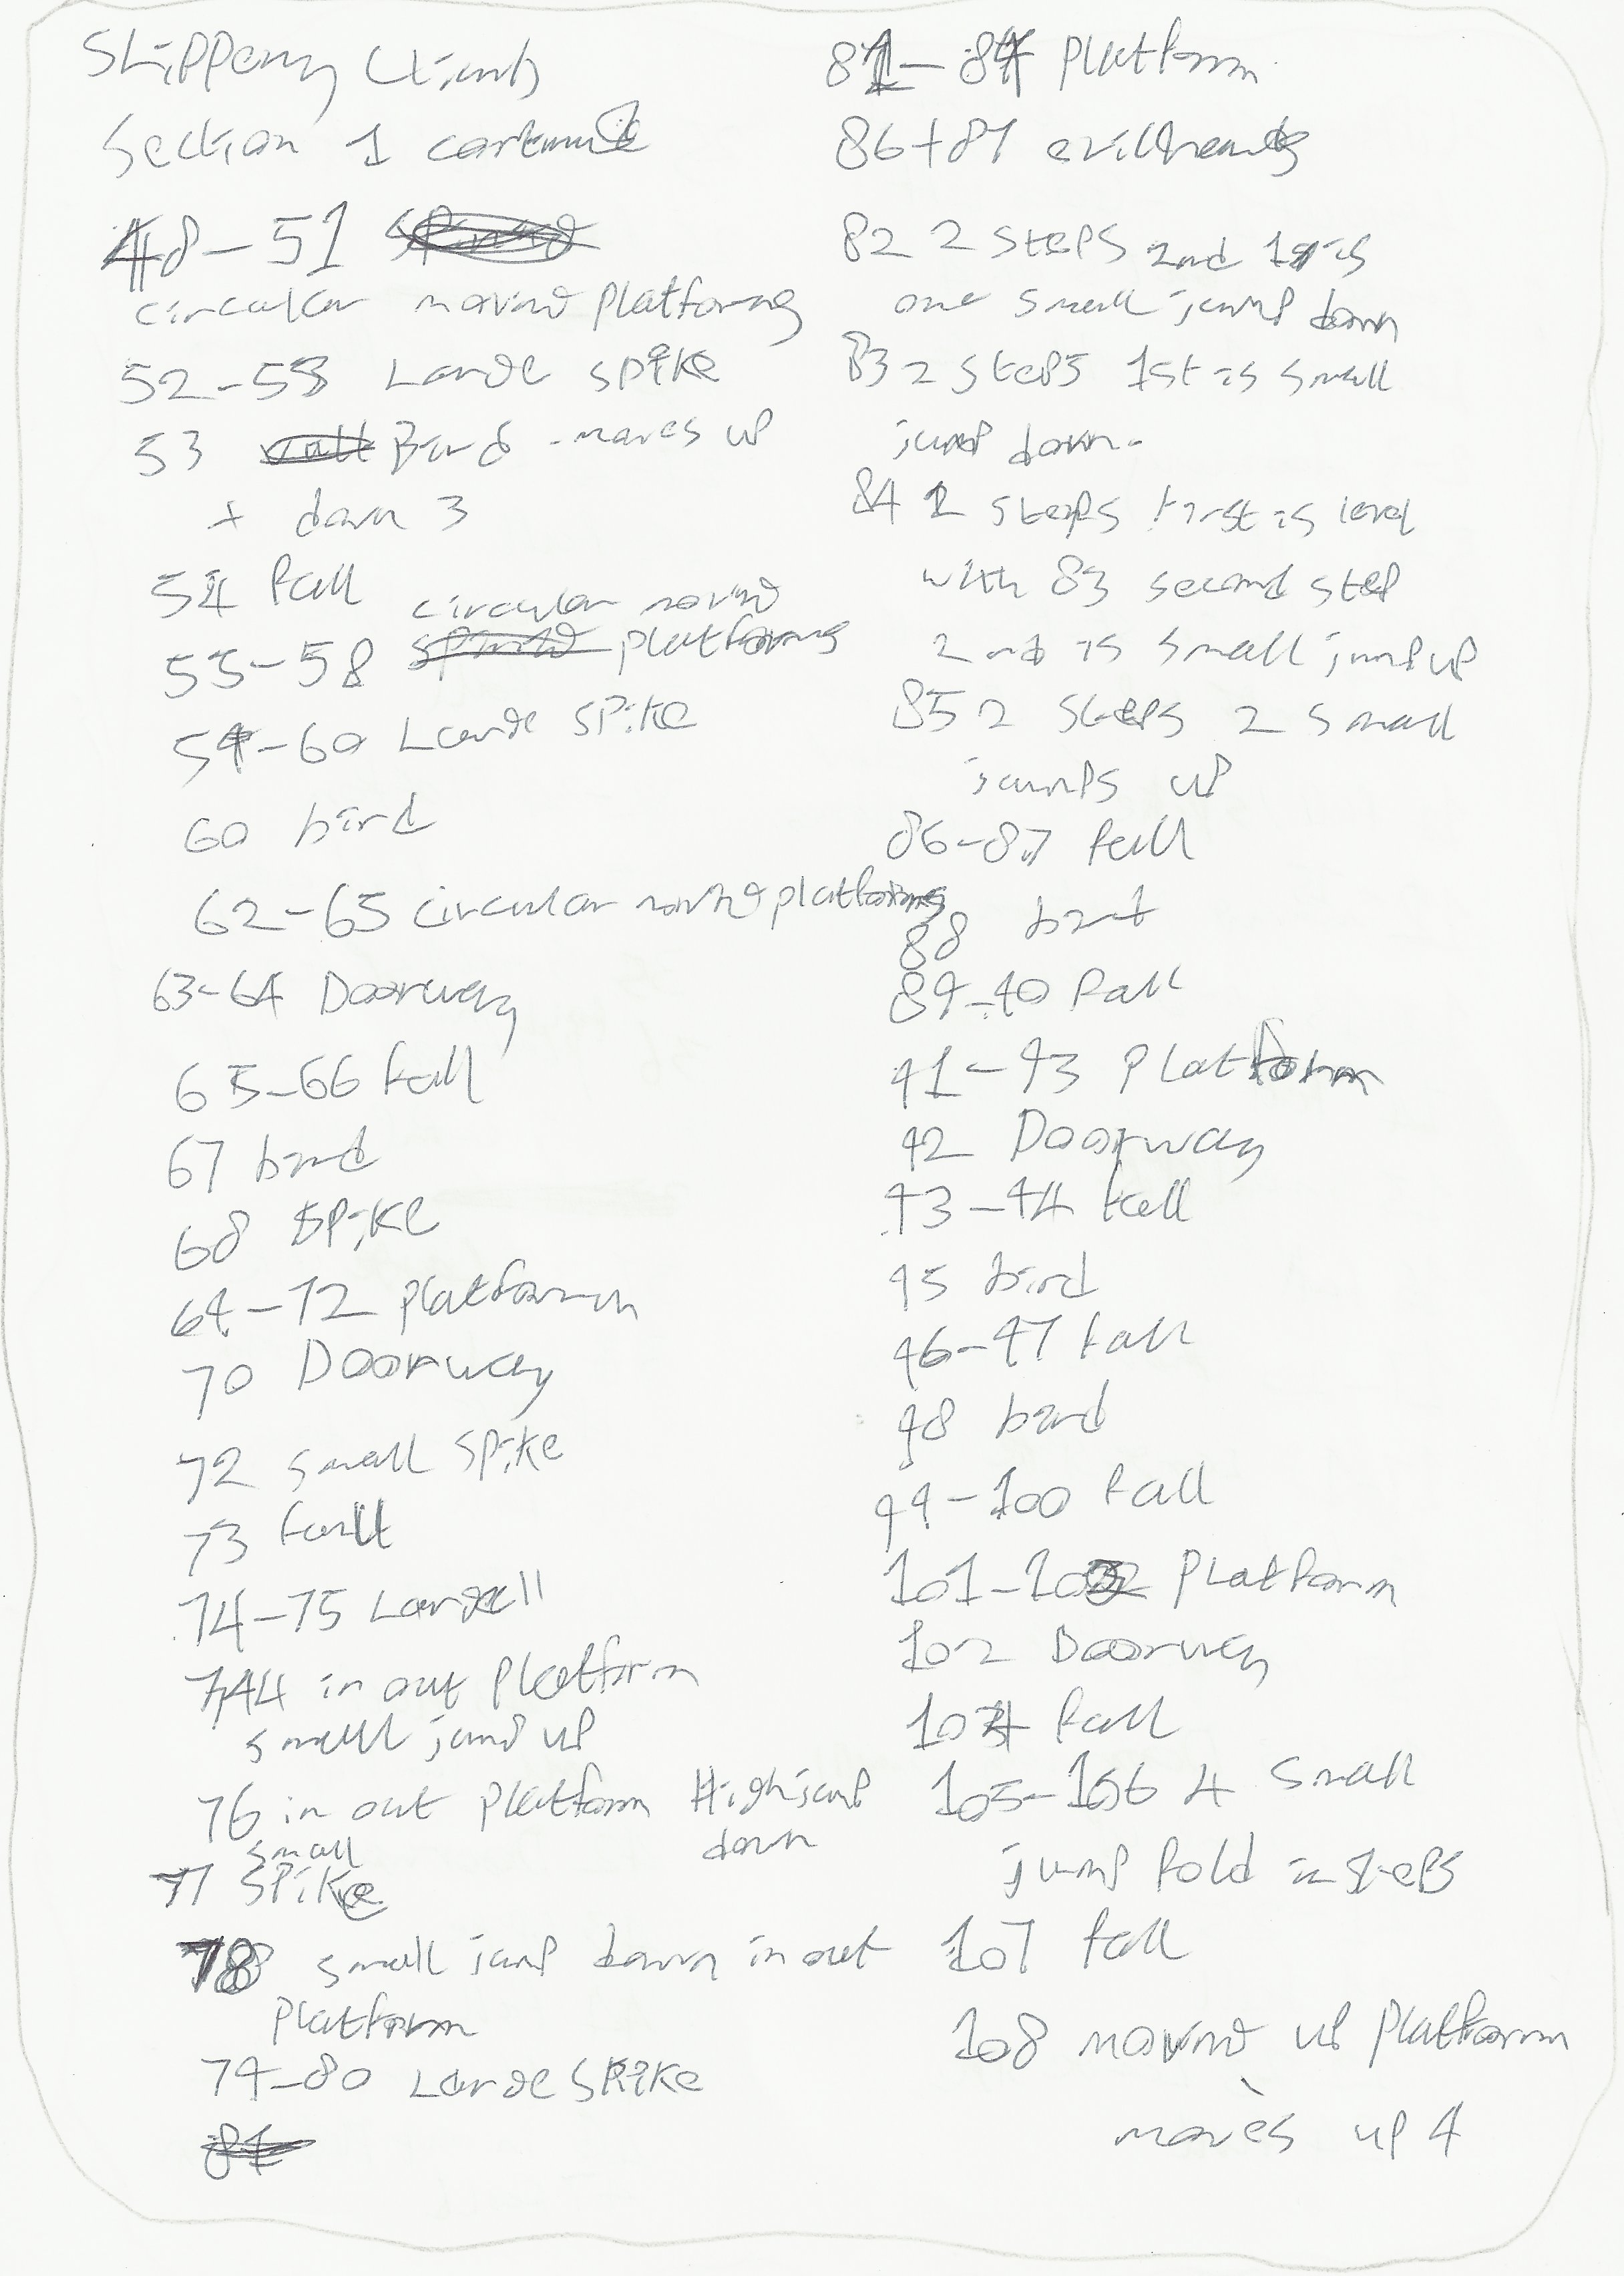 Slippery Climb
Section 1 continued
48-51
circular moving platforms
52-53 Large spike
53 Bird - moves up
+ down 3
54 fall
circular moving
55-58 platforms
59-60 Large spike
60 bird
62-65 circular moving platforms
63-64 Doorway
65-66 fall
67 bird
68 spike
69-72 platform
70 Doorway
72 small spike
73 fall
74-75
744 in out platform
small jump up
76 in out platform High jump
down
small
77 spike
78 small jump down in out
platform
79-80 Large spike
81-89 platform
86+87 evil heads
82 2 steps 2nd 1 is
one small jump down
83 2 steps 1st is small
jump down.
84 2 steps first is level
with 83 second step
2nd is small jump up
85 2 steps 2 small
jumps up
86-87 fall
88 bird
89-90 fall
91-93 platform
92 Doorway
93-94 fall
95 bird
96-97 fall
98 bird
99-100 fall
101-103 platform
102 Doorway
104 fall
105-106 4 small
jump fold in steps
107 fall
108 moving up platform
moves up 4